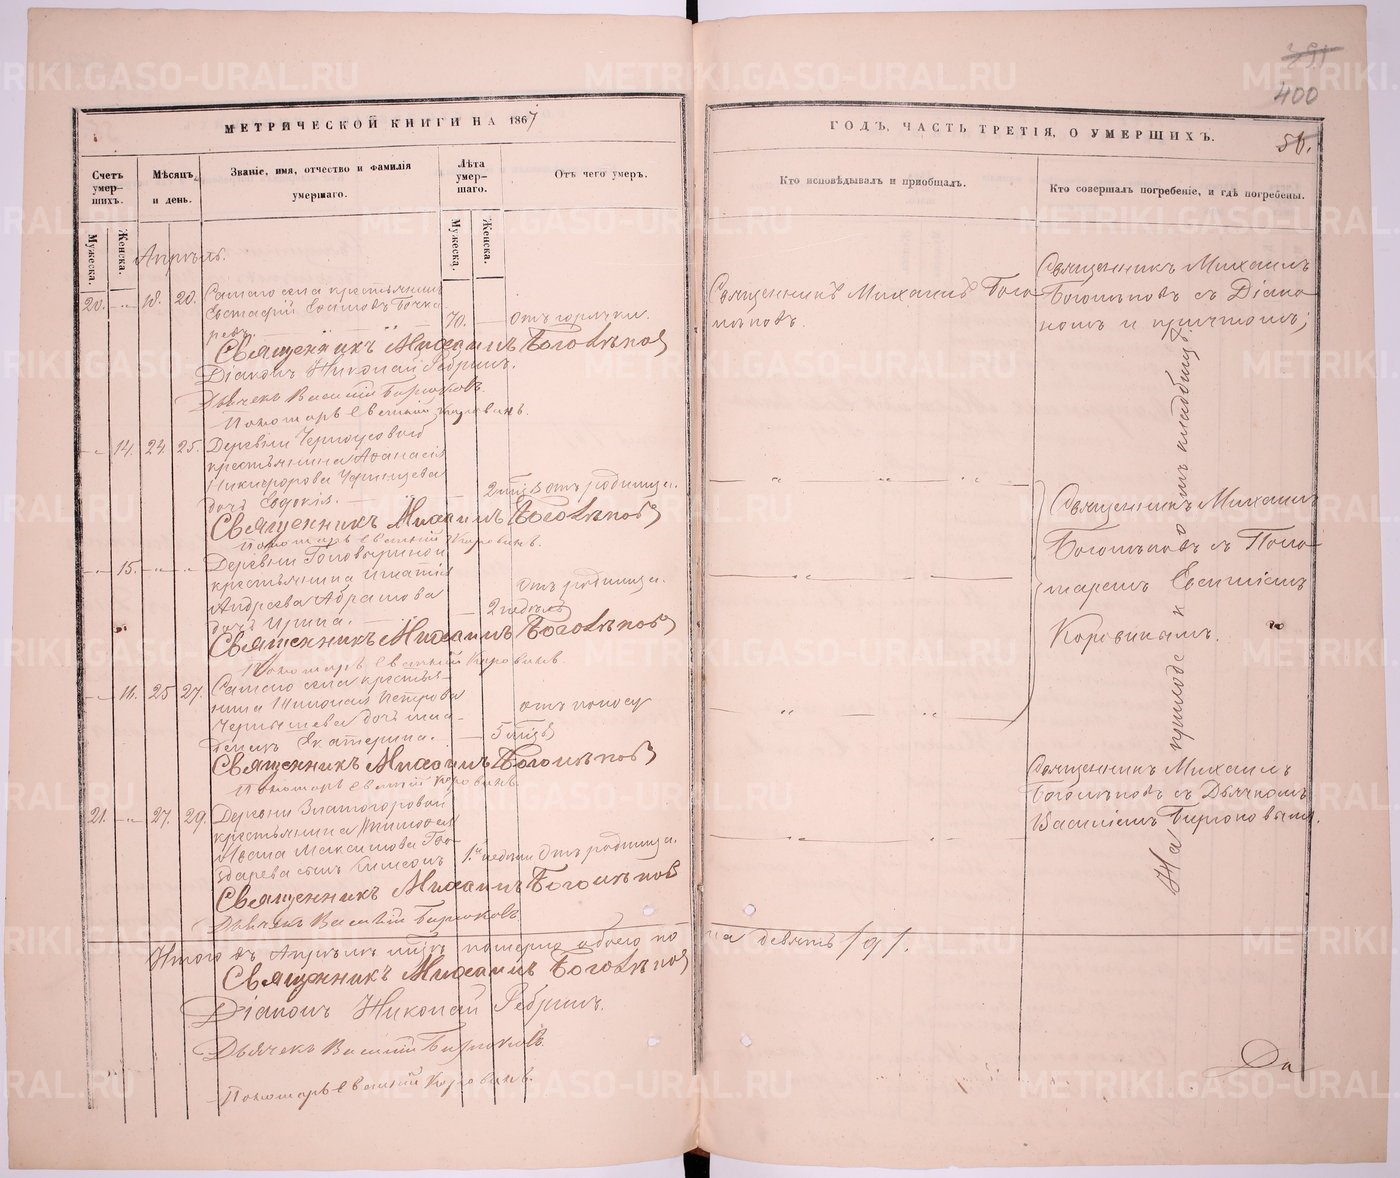 МЕТРИЧЕСКОЙ КНИГИ НА 1867
Счетъ умер-шихъ.
Мѣсяцъ и день.
Званіе, имя, отчество и фамилія умершаго.
Лѣта умер-шаго.
Отъ чего умеръ.
Мужеска.
Женска.
Мужеска.
Женска.
Апрѣль.
20. 18. 20. Самаго села крестьянинъ
Евстафій
70. отъ горячки.
Священникъ Михаилъ Боголѣповъ
Діаконъ Николай Ребринъ.
Дьячекъ Василій Бирюковъ.
Пономарь Евгеній Коровинъ.
14. 24. 25. Деревни Черноусовой
крестьянина Афанасія
Никифорова Чернышева
дочь Евдокія.
2 мѣс отъ родимца.
Священникъ Михаилъ Боголѣповъ
Пономарь Евгеній Коровинъ.
15. Деревни Головыриной
крестьянина Игнатія
Андреева Абрамова
дочь Ирина.
2 недѣль
отъ родимца.
Священникъ Михаилъ Боголѣповъ
Пономарь Евгеній Коровинъ.
16. 25 27. Самаго села крестья-
нина Николая Петрова
Чернышева дочь мла-
денецъ Екатерина.
5 мѣс
отъ поносу
Священникъ Михаилъ Боголѣповъ
Пономарь Евгеній Коровинъ
21. 27. 29. Деревни Златогоровой
крестьянина
Ивана Максимова
сынъ Симеонъ
1. недѣли отъ родимца.
Священникъ Михаилъ Боголѣповъ
Дьячекъ Василій Бирюковъ
Итого въ Апрѣлѣ мцѣ померло обоего по-
Священникъ Михаилъ Боголѣповъ
Діаконъ Николай Ребринъ.
Дьячекъ Василій Бирюковъ.
Пономарь Евгеній Коровинъ.
400
ГОДЪ, ЧАСТЬ ТРЕТІЯ, О УМЕРШИХЪ.
56.
Кто исповѣдывалъ и пріобщалъ.
Кто совершалъ погребеніе, и гдѣ погребены.
Священникъ Михаилъ Бого-
лѣповъ.
Священникъ Михаилъ
Боголѣповъ съ Діако-
номъ и причтомъ;
Священникъ Михаилъ
Боголѣповъ съ Поно-
маремъ Евгеніемъ
Коровинымъ.
Священникъ Михаилъ
Боголѣповъ съ Дьячкомъ
Василіемъ Бирюковымъ.
На приходскомъ кладбищѣ
ла девять /9/.
Да
METRIKI.GASO-URAL.RU